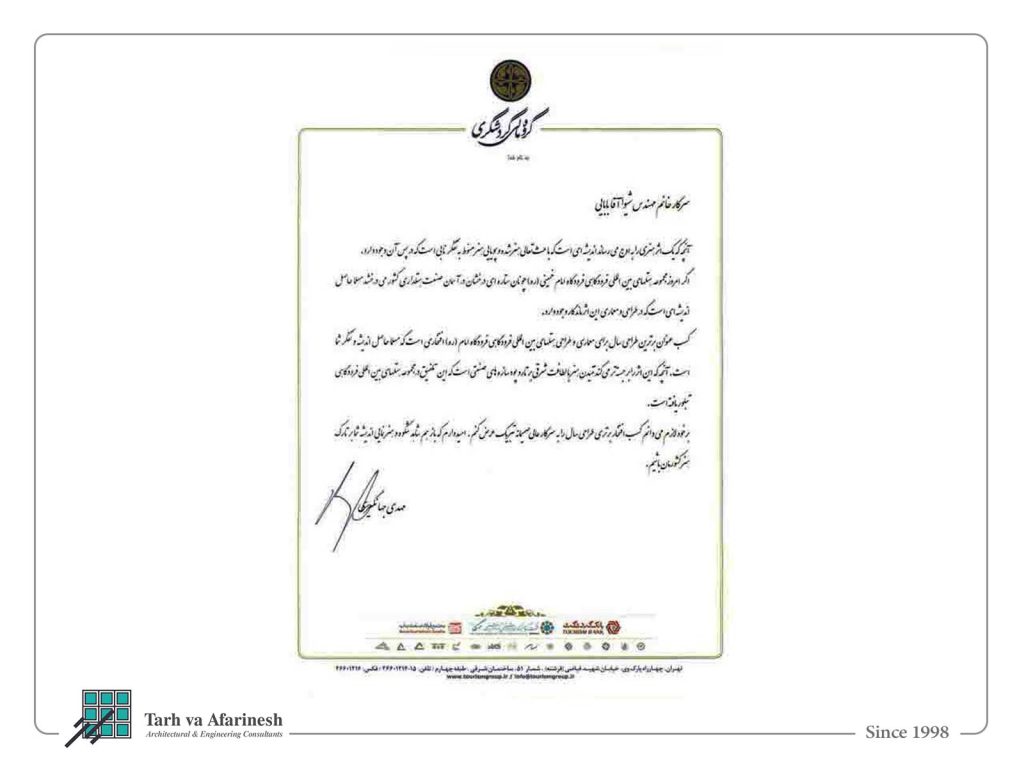 گروه مالی گردشگری
به نام خدا
سرکار خانم مهندس شیوا آقابابایی
آنچه که یک اثر هنری را به اوج می رساند اندیشه ای است که باعث تعالی هنر شده و پویایی هنر منوط به تفکر نابی است که در پس آن وجود دارد.
اگر امروز مجموعه هتلهای بین المللی فرودگاهی فرودگاه امام خمینی (ره) چونان ستاره ای درخشان در آسمان صنعت هتلداری کشور می درخشد مسلما حاصل
اندیشه ای است که در طراحی و معماری این اثر ماندگار وجود دارد.
کسب عنوان برترین طراحی سال برای معماری و طراحی هتلهای بین المللی فرودگاهی فرودگاه امام (ره) افتخاری است که مسلما حاصل اندیشه و تفکر شما
است. آنچه که این اثر را برجسته تر می کند تنیدن هنر با لطافت شرقی بر تار و پود سازه های صنعتی است که این تلفیق در مجموعه هتلهای بین المللی فرودگاهی
تبلور یافته است.
بر خود لازم می دانم کسب افتخار برتری طراحی سال را به سرکار عالی صمیمانه تبریک عرض کنم. امیدوارم که باز هم شاهد شکوه و هنرنمایی اندیشه شما بر تارک
هنر کشورمان باشیم.
مهدی جهانگیری
بانک گردشگری
TOURISM BANK
تهران، چهارراه پارک وی، خیابان شهید فیاضی (فرشته)، شماره ۵۱، ساختمان شرقی، طبقه چهارم / تلفن: ۱۵-۲۶۶۰۱۲۱۴ / فکس: ۲۶۶۰۱۲۱۶
www.tourismgroup.ir / info@tourismgroup.ir
Tarh va Afarinesh
Architectural & Engineering Consultants
Since 1998